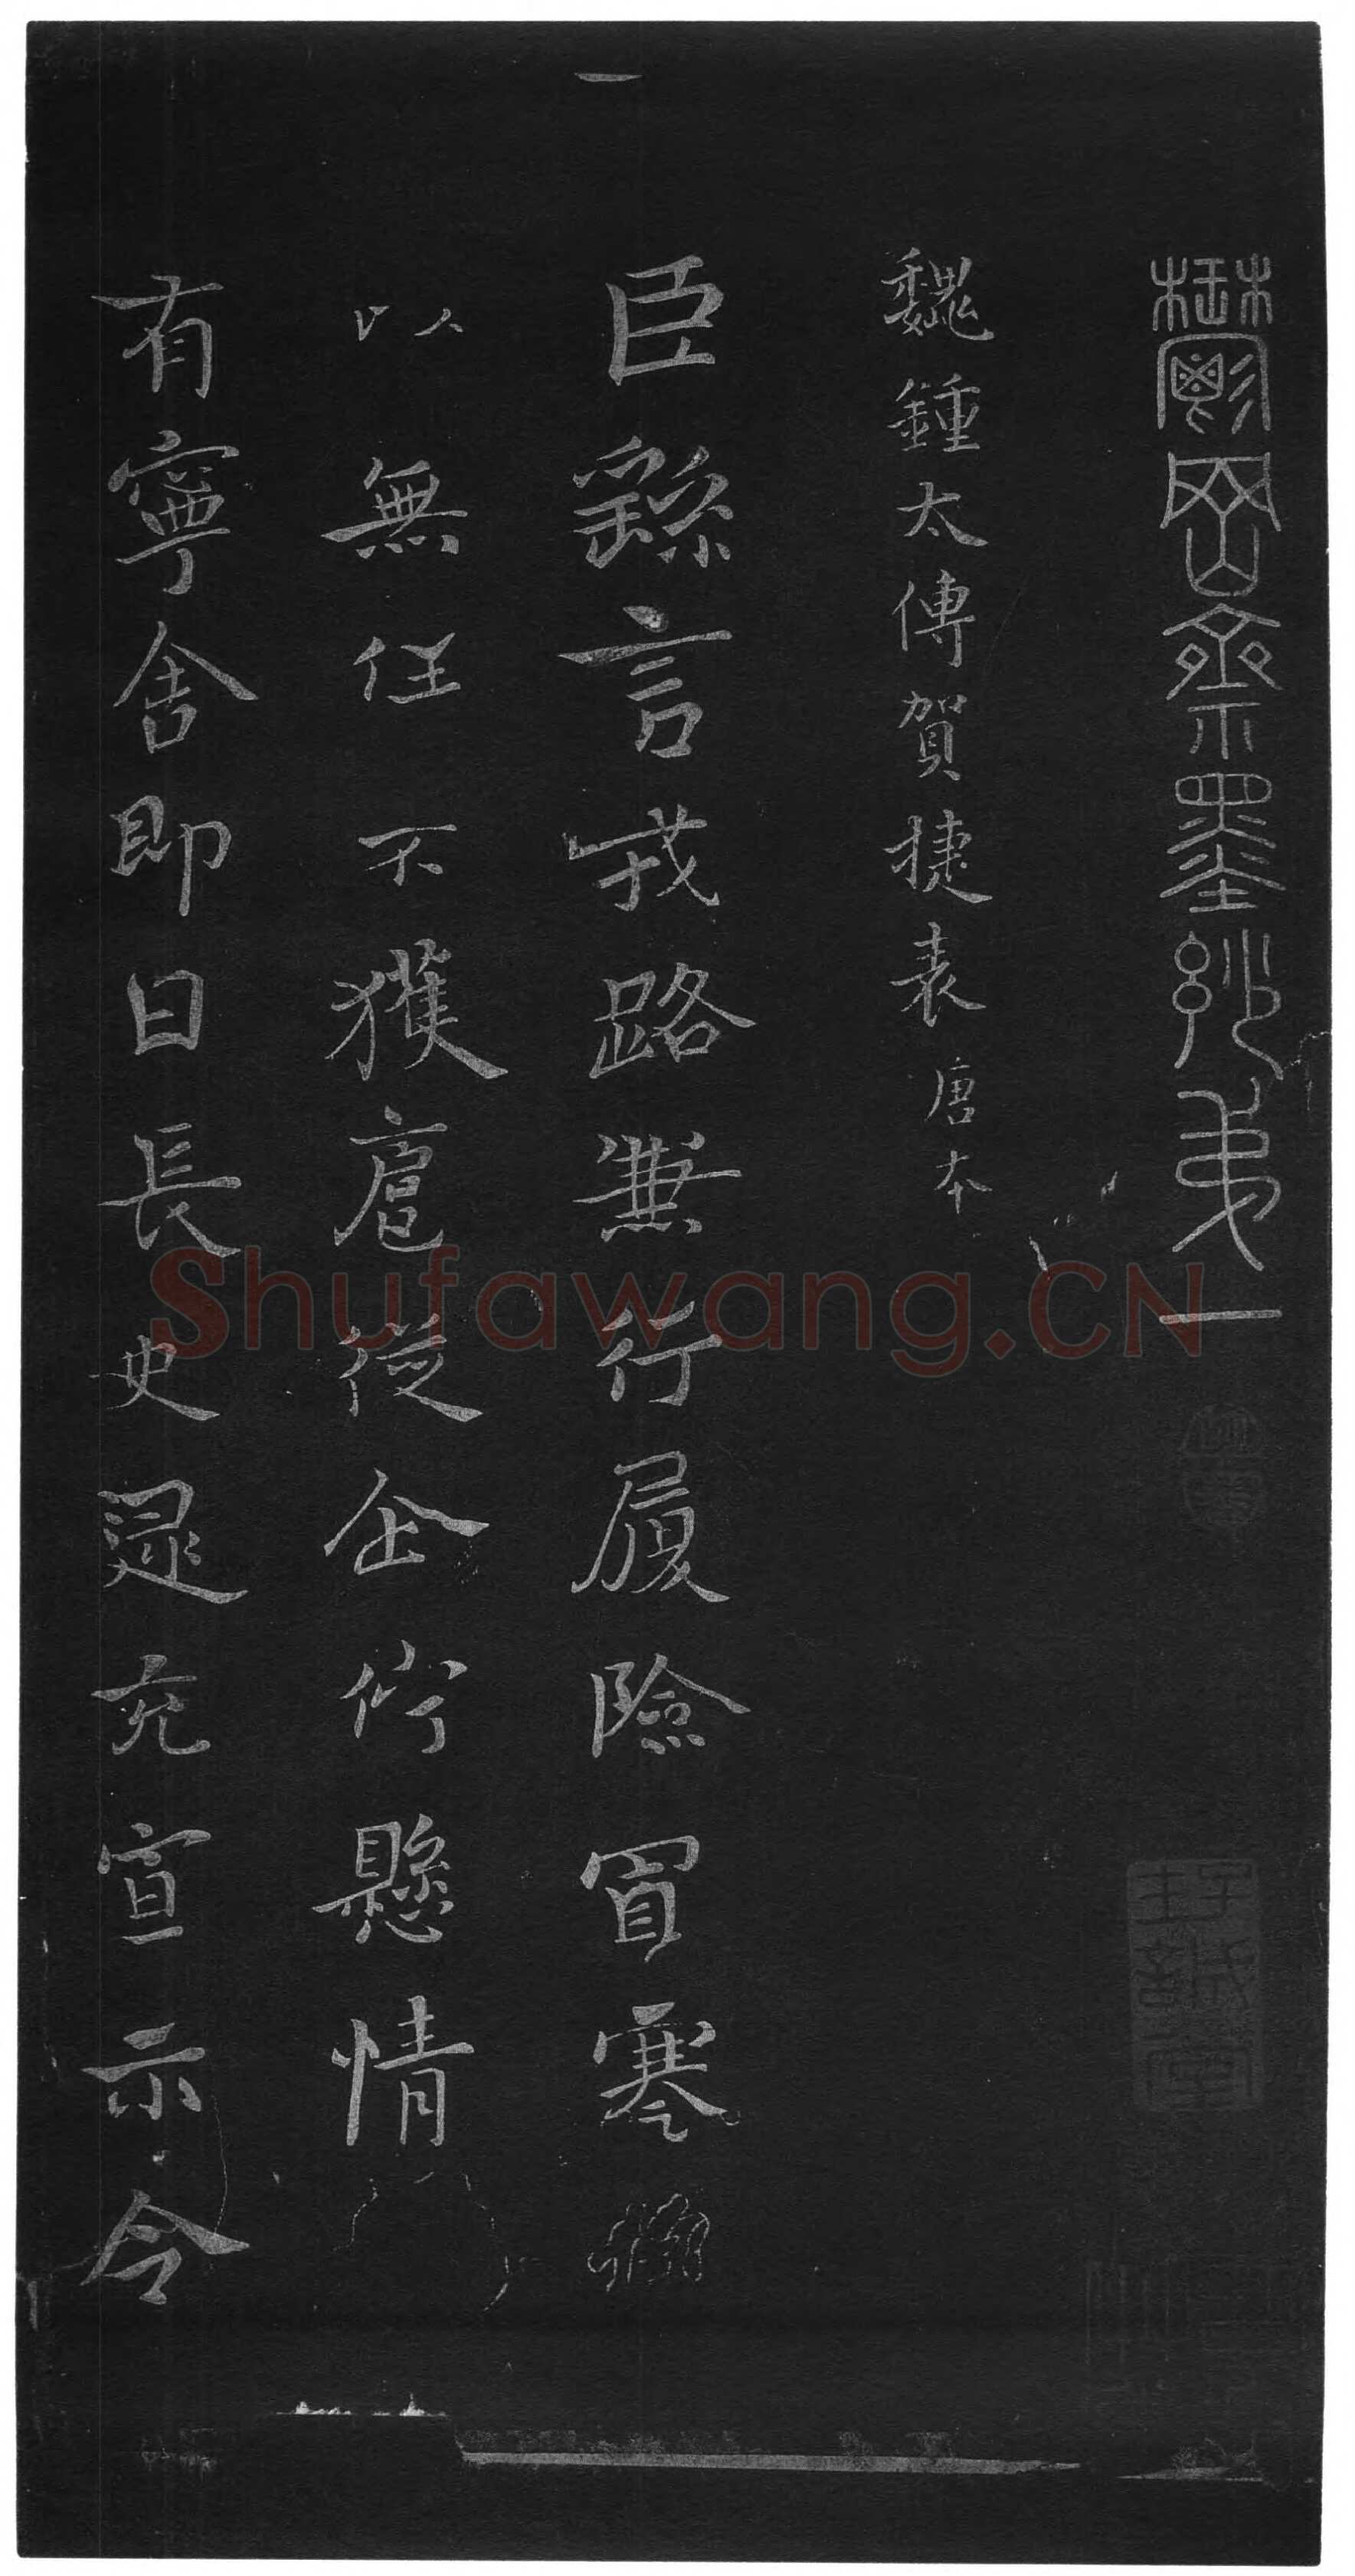 鬱岡齋墨妙第一
魏鍾太傅賀捷表 唐本
一
臣繇言戎路兼行履險冒寒
以無任不獲扈從企佇懸情
有寧舍即日長史逯充宣示令
Shufawang.CN